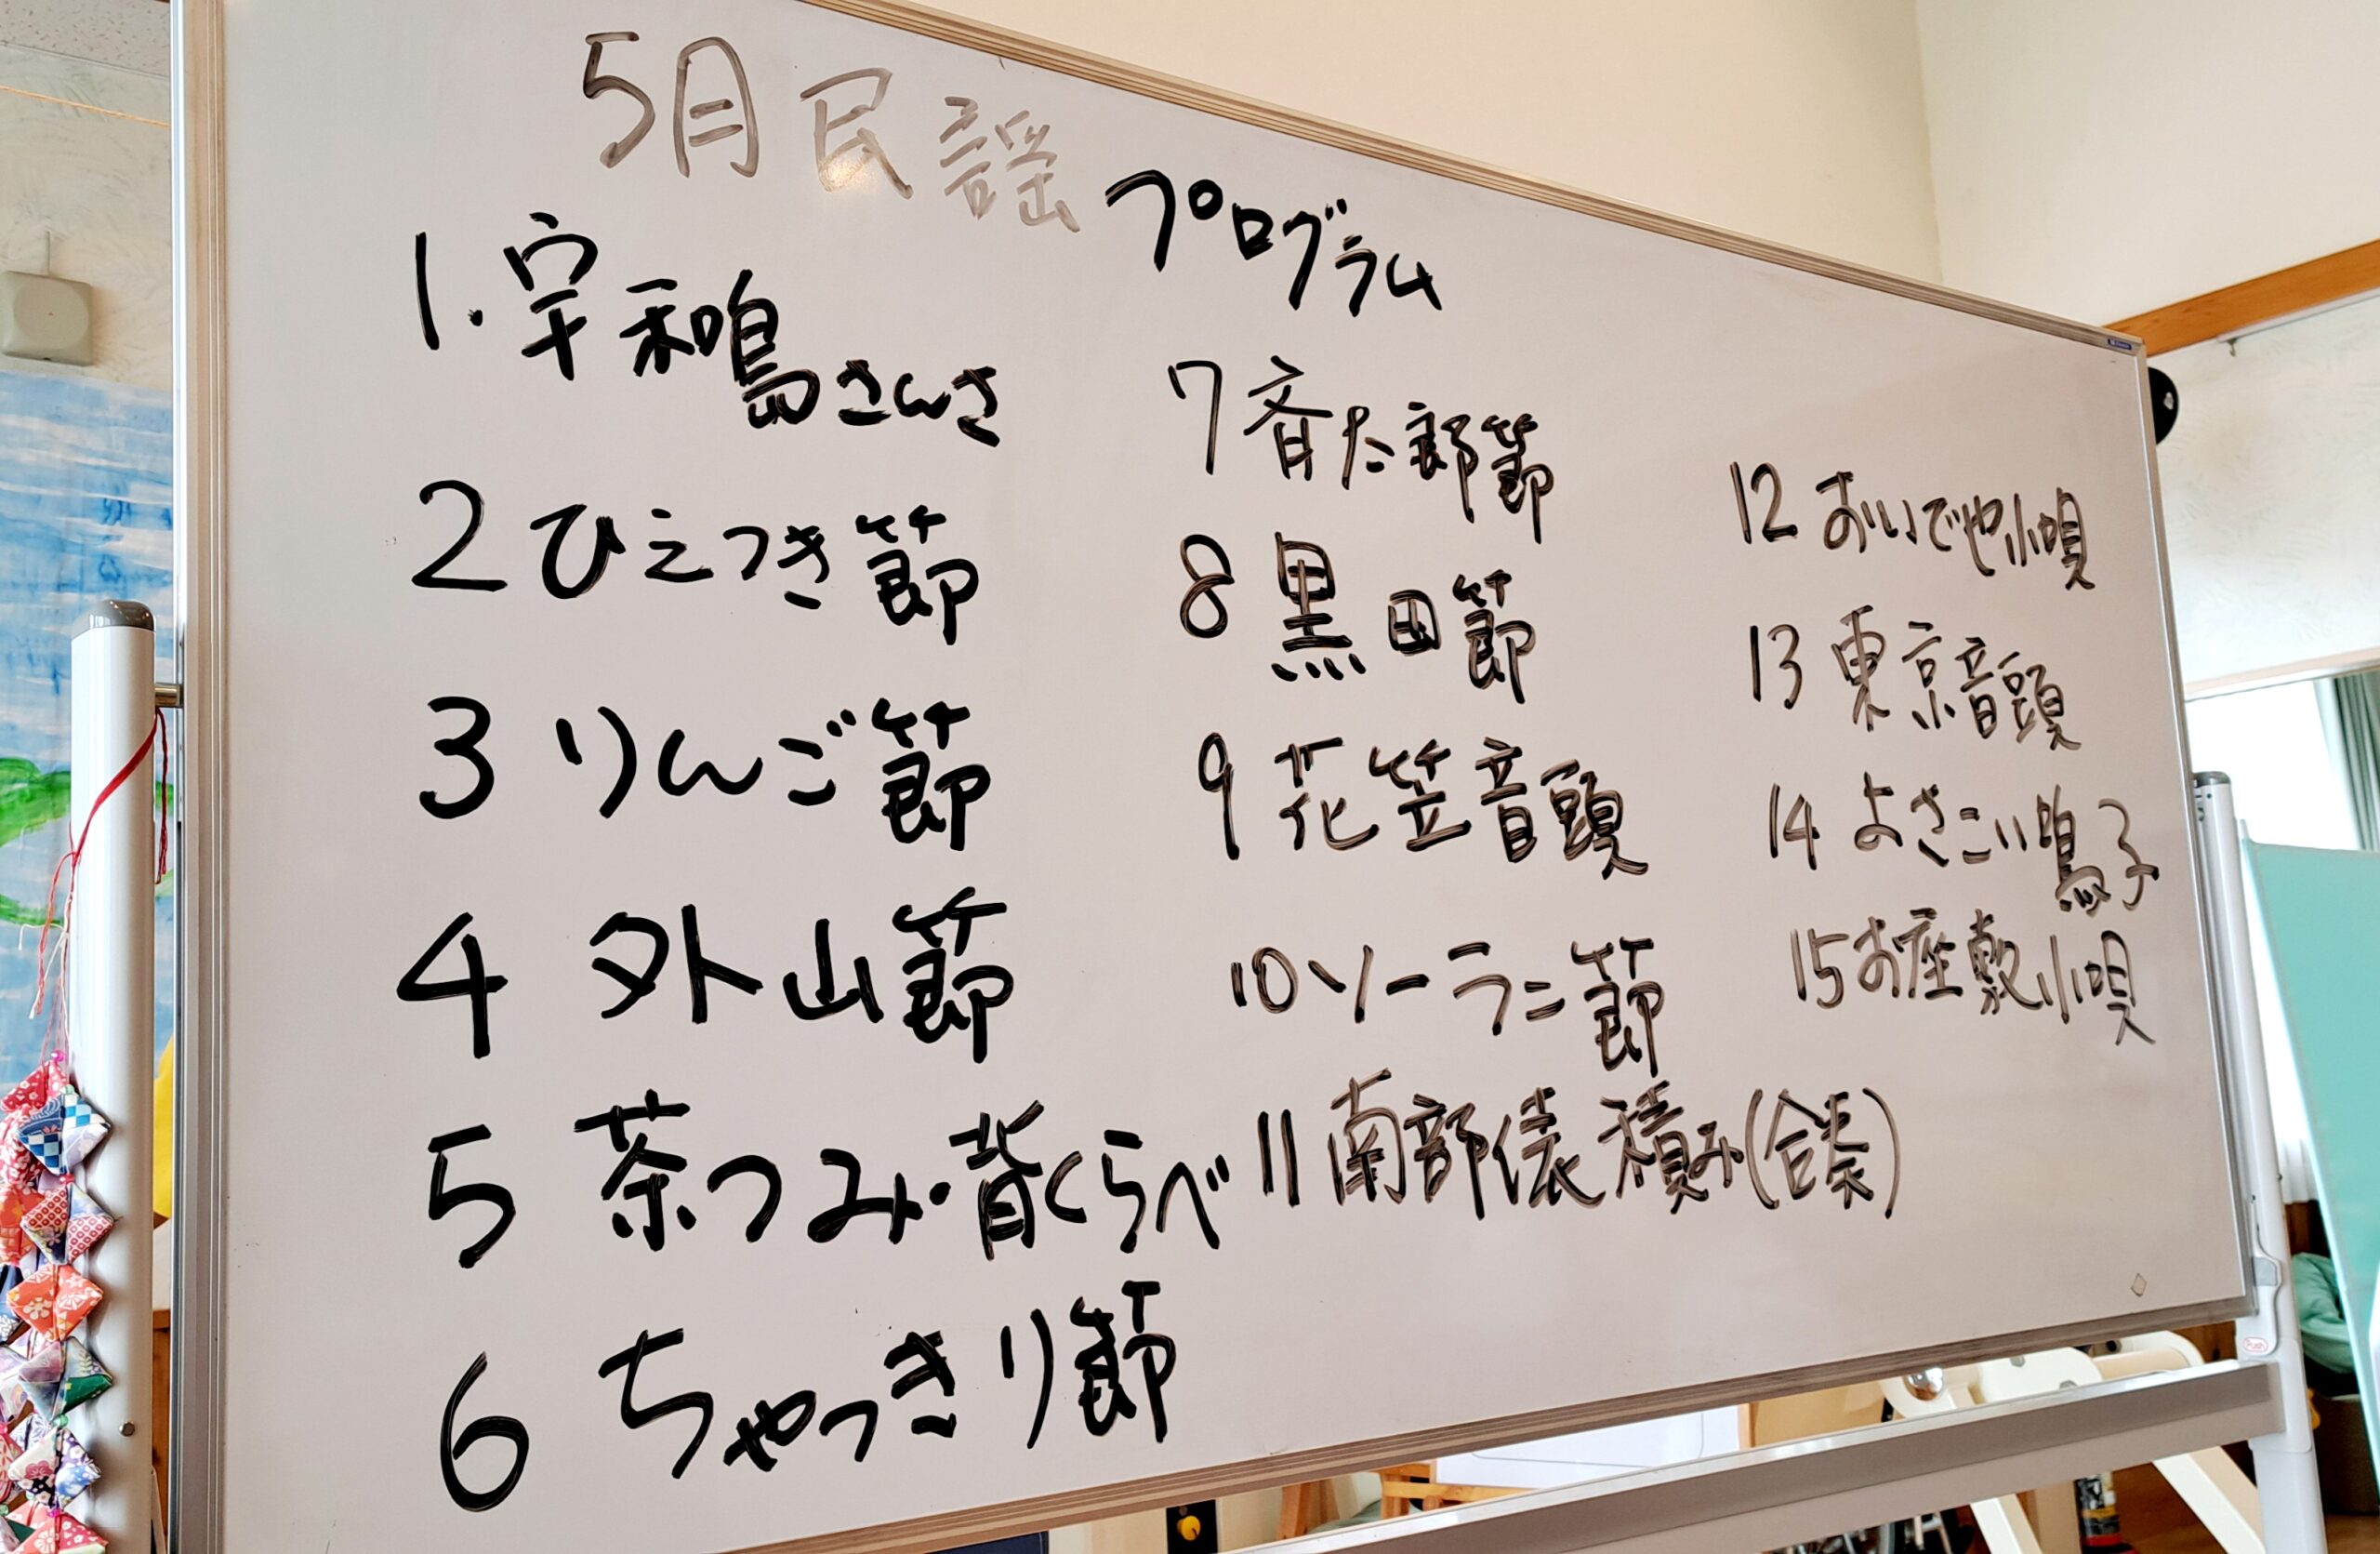 5月民謡プログラム
1.宇和島さんさ
2 ひえつき節
3 りんご節
4 外山節
5 茶つみ・背くらべ
6 ちゃっきり節
7 斉太郎節
8 黒田節
9 花笠音頭
10 ソーラン節
11 南部俵積み(合奏)
12 おいでや小唄
13 東京音頭
14 よさこい鳴子
15 お座敷小唄